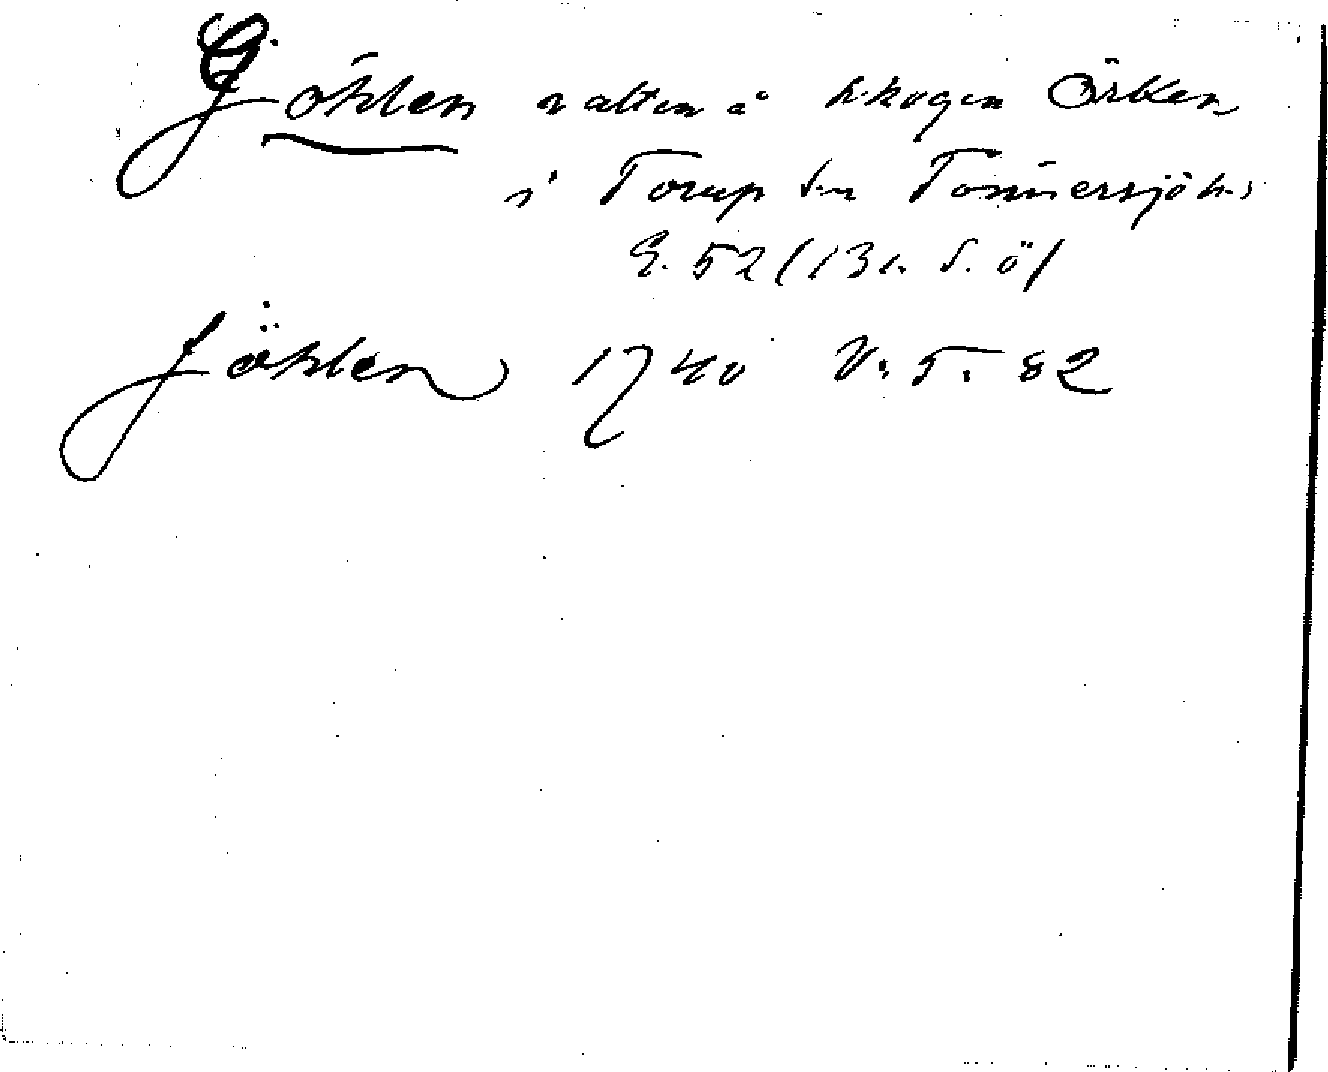 Göhlen vatten å h.skogen Örken
i Torup sn Tönnersjö h.
G. 52 (13 r. S. ö)
Jöhlen 1740 V. 5. 82